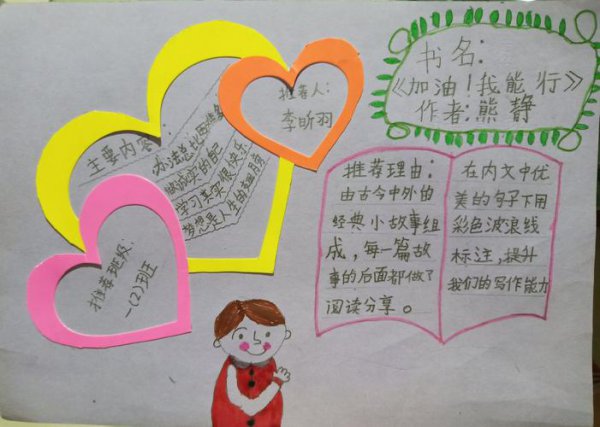 书名:
《加油！我能行》
作者:熊静
推荐人:
李昕羽
主要内容:
办法总比困难多
做诚实的自己
学习其实很快乐
梦想是人生的翅膀
推荐班级:
一(2)班
推荐理由:
由古今中外的
经典小故事组
成,每一篇故
事的后面都做了
阅读分享。
在内文中优
美的句子下用
彩色波浪线
标注,提升
我们的写作能力